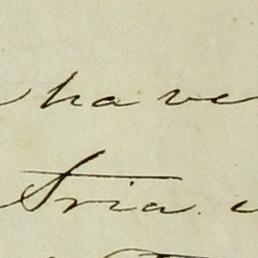 have
tria